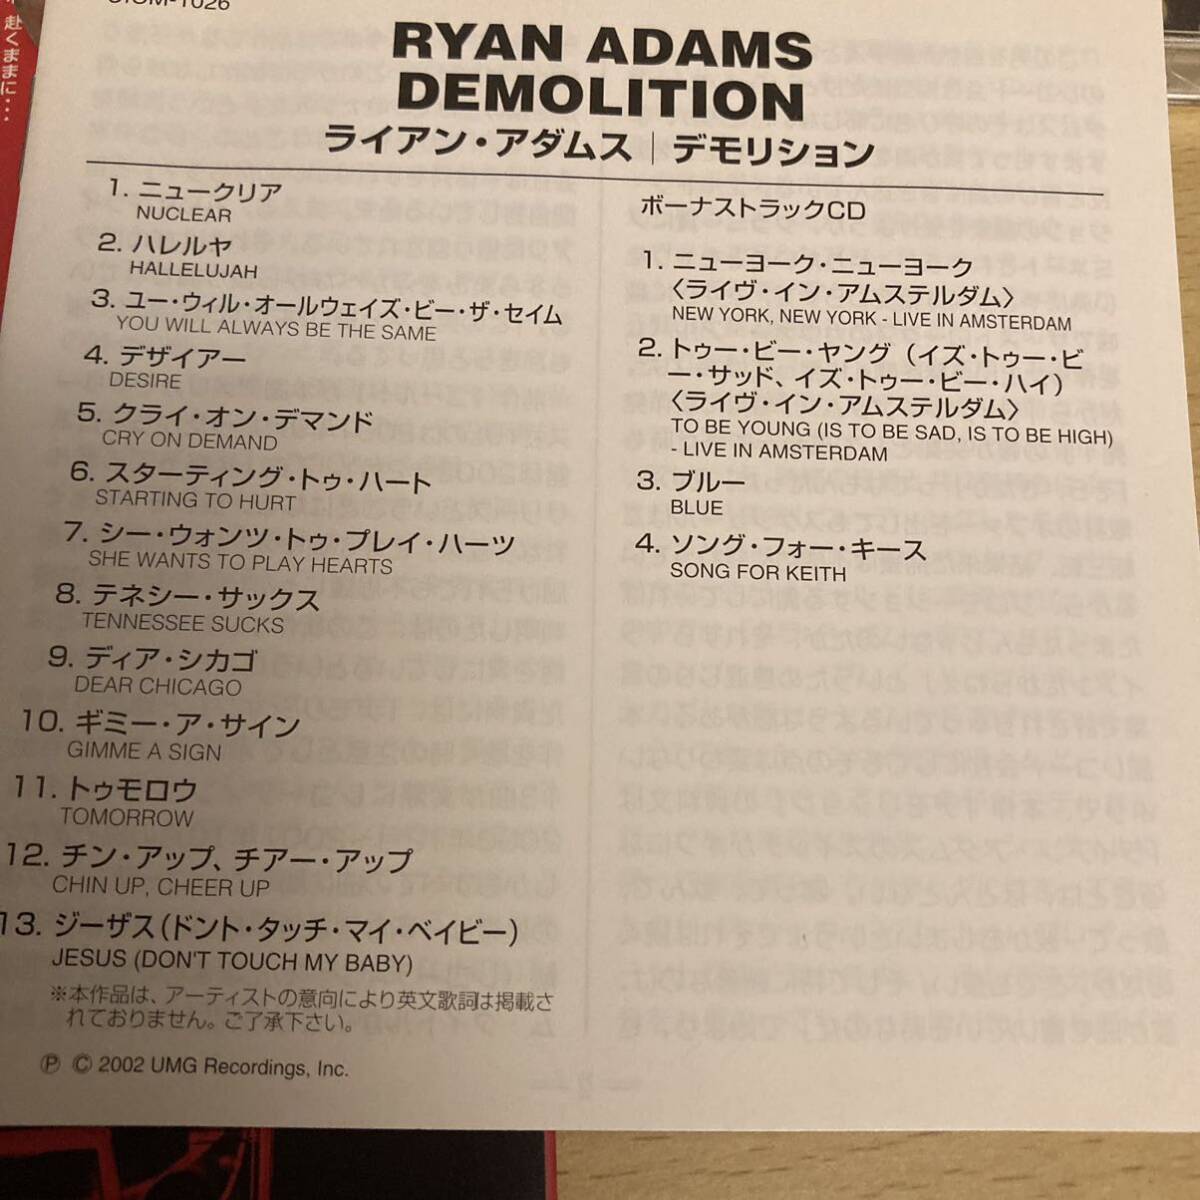 赴くままに…
RYAN ADAMS
DEMOLITION
ライアン・アダムス｜デモリション
1. ニュークリア
NUCLEAR
2. ハレルヤ
HALLELUJAH
3. ユー・ウィル・オールウェイズ・ビー・ザ・セイム
YOU WILL ALWAYS BE THE SAME
4. デザイアー
DESIRE
5. クライ・オン・デマンド
CRY ON DEMAND
6. スターティング・トゥ・ハート
STARTING TO HURT
7. シー・ウォンツ・トゥ・プレイ・ハーツ
SHE WANTS TO PLAY HEARTS
8. テネシー・サックス
TENNESSEE SUCKS
9. ディア・シカゴ
DEAR CHICAGO
10. ギミー・ア・サイン
GIMME A SIGN
11. トゥモロウ
TOMORROW
12. チン・アップ、チアー・アップ
CHIN UP, CHEER UP
13. ジーザス（ドント・タッチ・マイ・ベイビー）
JESUS (DON'T TOUCH MY BABY)
※本作品は、アーティストの意向により英文歌詞は掲載さ
れておりません。ご了承下さい。
Ⓟ © 2002 UMG Recordings, Inc.
ボーナストラックCD
1. ニューヨーク・ニューヨーク
〈ライヴ・イン・アムステルダム〉
NEW YORK, NEW YORK - LIVE IN AMSTERDAM
2. トゥー・ビー・ヤング（イズ・トゥー・ビ
ー・サッド、イズ・トゥー・ビー・ハイ）
〈ライヴ・イン・アムステルダム〉
TO BE YOUNG (IS TO BE SAD, IS TO BE HIGH)
- LIVE IN AMSTERDAM
3. ブルー
BLUE
4. ソング・フォー・キース
SONG FOR KEITH